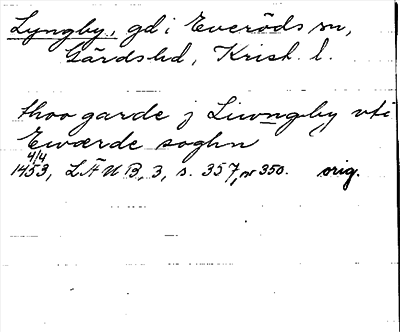 Lyngby, gd i Everöds sn,
Gärds hd, Krist. l.
thoo garde j Liwngby vti
Ewærde soghn
4/4
1453, LÄUB, 3, s. 357, nr 350. orig.